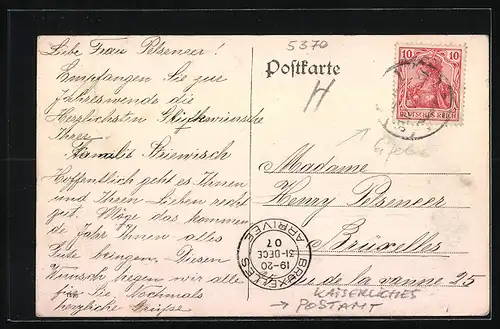 Liebe Frau Pelseneer!
Empfangen Sie zur
Jahreswende die
Herzlichsten Glückwünsche
Ihrer
Familie
Hoffentlich geht es Ihnen
und Ihren Lieben recht
gut. Möge das kommen
de Jahr Ihnen alles
Gute bringen. Diesen
Wunsch hegen wir alle
für Sie Nochmals
herzliche Grüsse
5370
Postkarte
H
10 10
DEUTSCHES REICH
Madame
Henry Pelseneer
Bruxelles
rue de la vanne 25
BRUXELLES
19-20
31-DECE
07
ARRIVEE
KAISERLICHES
→ POSTAMT